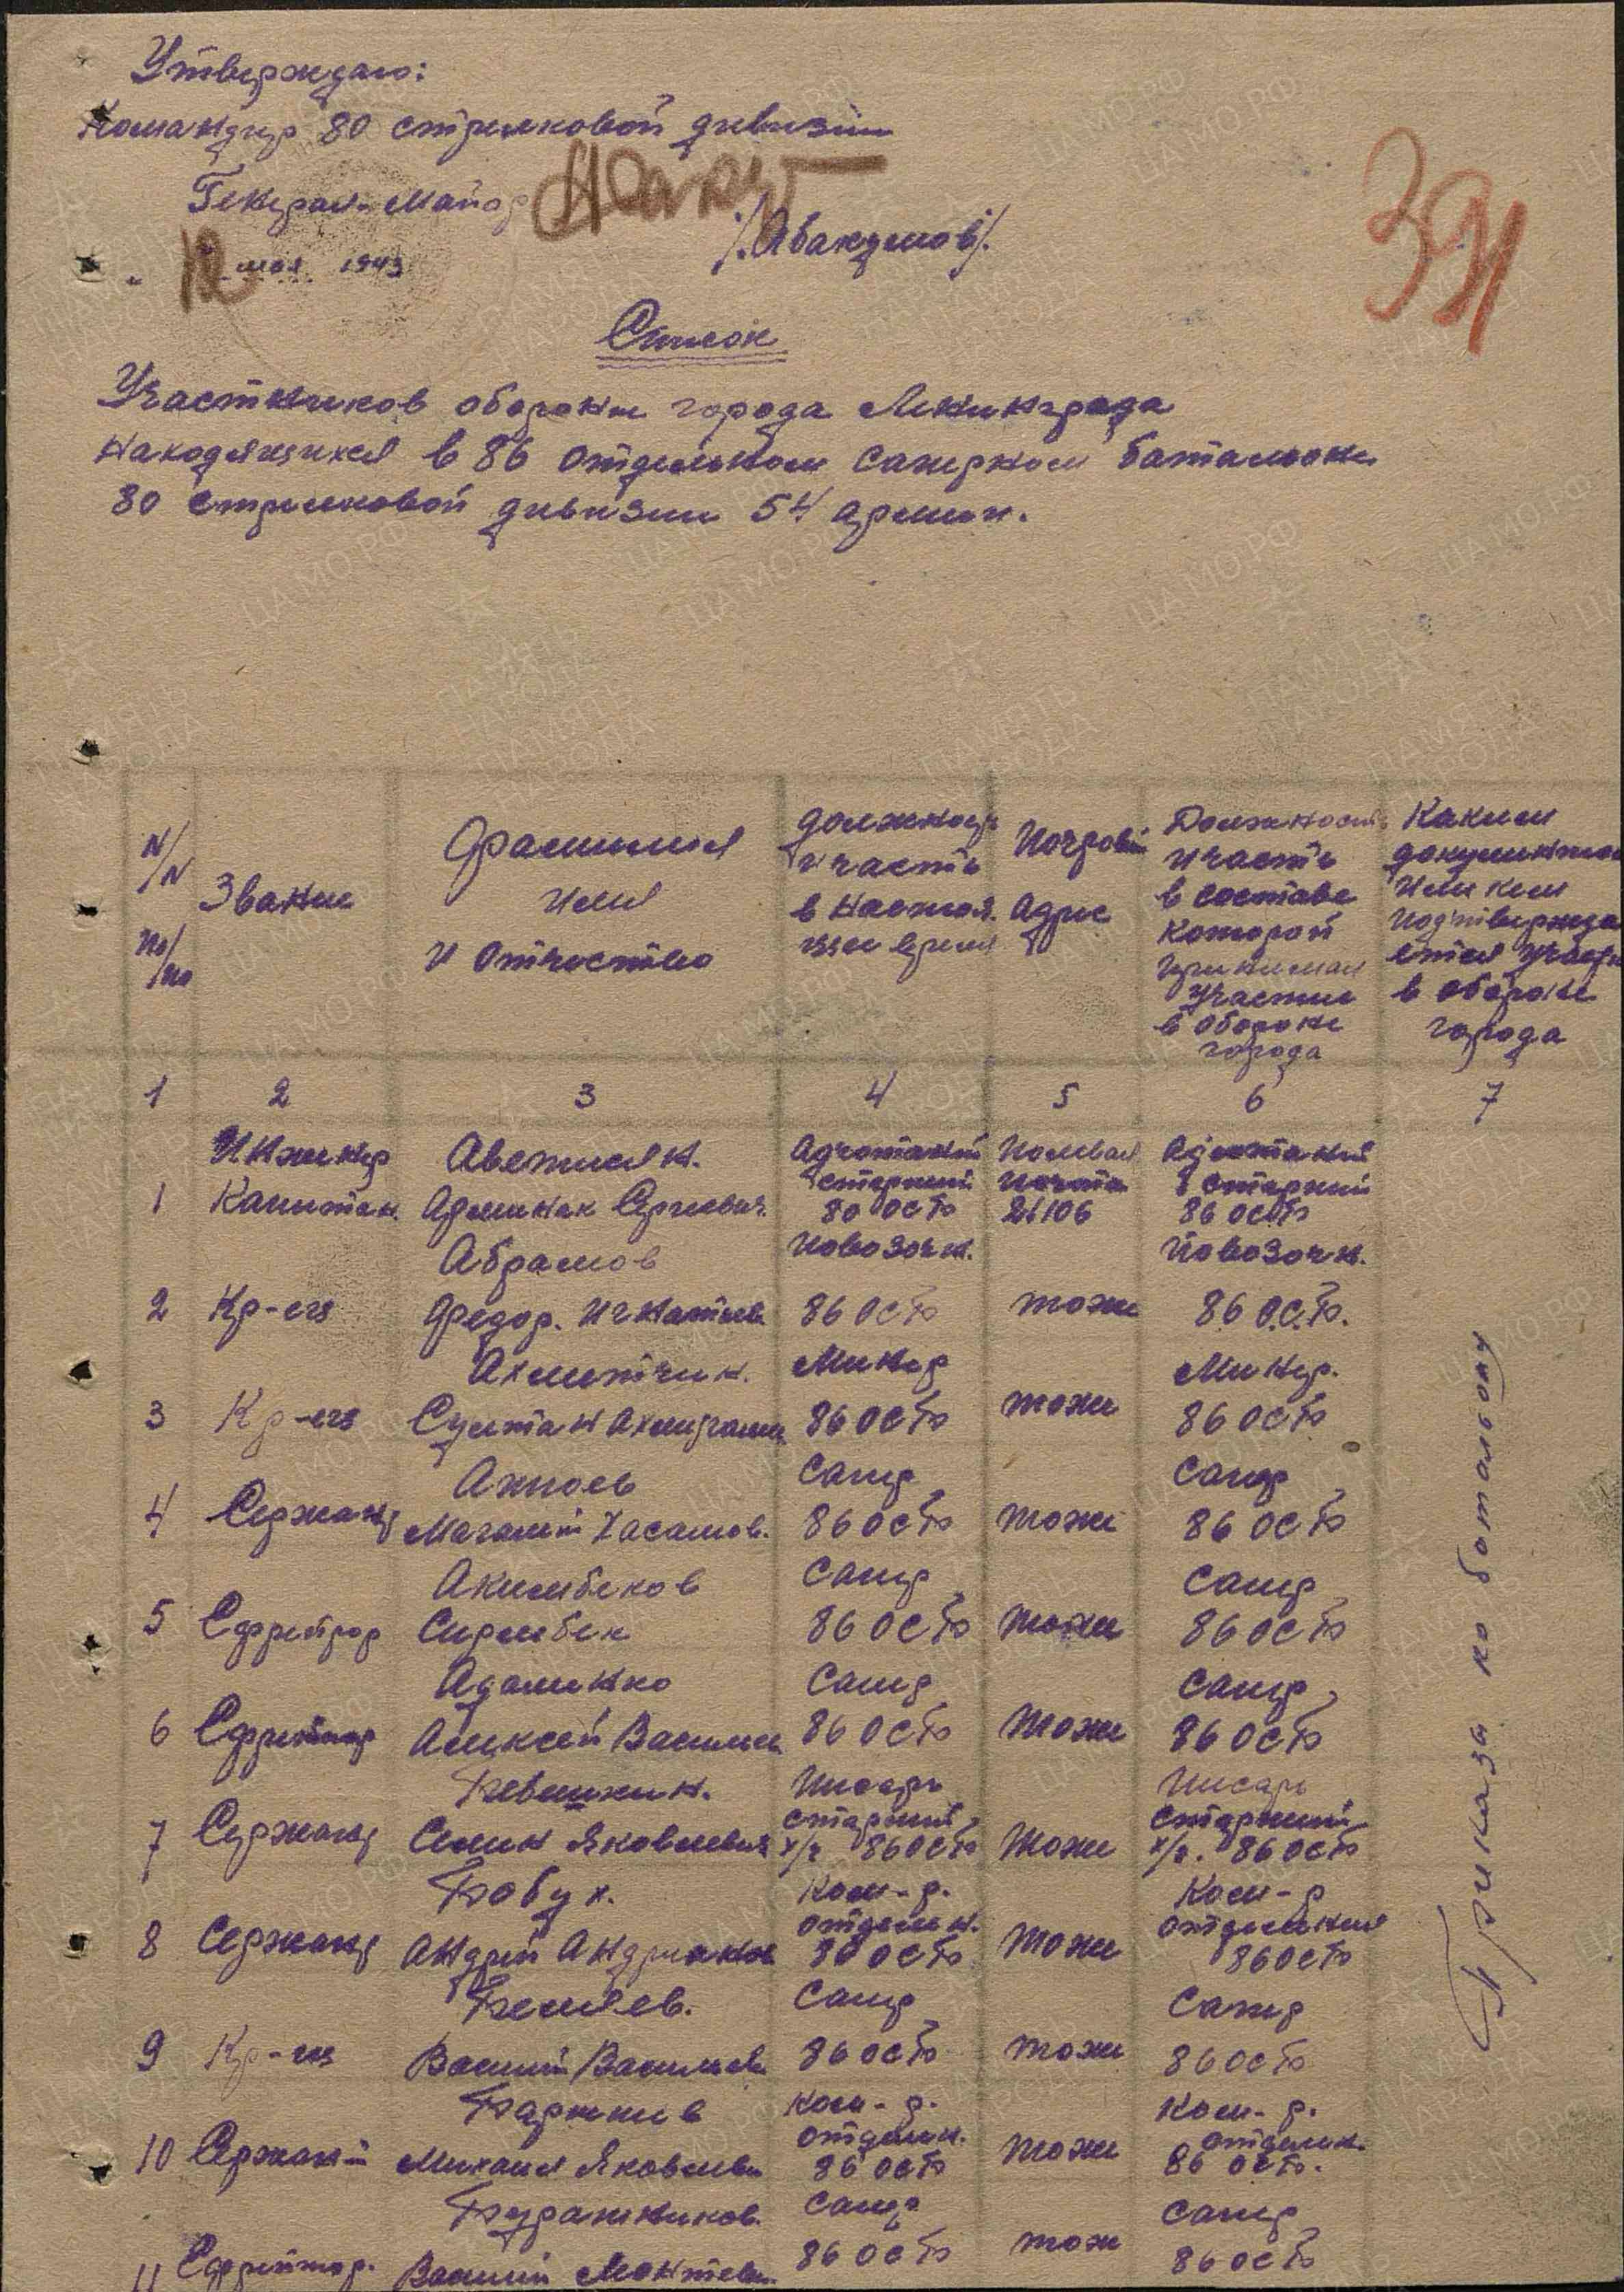 Утверждаю:
Командир 80 стрелковой дивизии
Генерал-Майор
/Абакумов/.
" 12 мая 1943
391
Список
Участников обороны города Ленинграда
находящихся в 86 отдельном саперном батальоне
80 стрелковой дивизии 54 армии.
N/N по/по
Звание
Фамилия имя и отчество
должность и часть в настоя. щее время
Почтовый Адрес
Должность и часть в составе которой принимал участие в обороне города
Какими документами или кем подтверждается участие в обороне города
1 2 3 4 5 6 7
Инженер Аветисян. Адъютант Полевая Адъютант
старший почта старший
1 Капитан. Арменак Сергеевич. 80 ОСБ 21106 86 ОСБ
Абрамов повозочн. повозочн.
2 Кр-ец Федор. Игнатьев. 86 ОСБ тоже 86 О.С.Б.
Ахметчин. Минер Минер.
3 Кр-ец Султан 86 ОСБ тоже 86 ОСБ
Сапер Сапер
4 Сержант Хасамов. 86 ОСБ тоже 86 ОСБ
Акимбеков Сапер Сапер
5 Ефрейтор 86 ОСБ тоже 86 ОСБ
Адаменко Сапер Сапер
6 Ефрейтор Алексей Васильев 86 ОСБ тоже 86 ОСБ
Писарь Писарь
старший старший
7 Сержант Яковлевич х/ч 86 ОСБ тоже х/ч. 86 ОСБ
Бобух. Ком-р. Ком-р
отделен. отделения
8 Сержант Андрей 80 ОСБ тоже 86 ОСБ
Беляев. Сапер Сапер
9 Кр-ец Василий Васильев 86 ОСБ тоже 86 ОСБ
Ком-р. Ком-р.
отделен. отделен.
10 Сержант Михаил Яковлев 86 ОСБ тоже 86 ОСБ.
Сапер Сапер
11 Ефрейтор. Василий 86 ОСБ тоже 86 ОСБ
Приказа по батальону